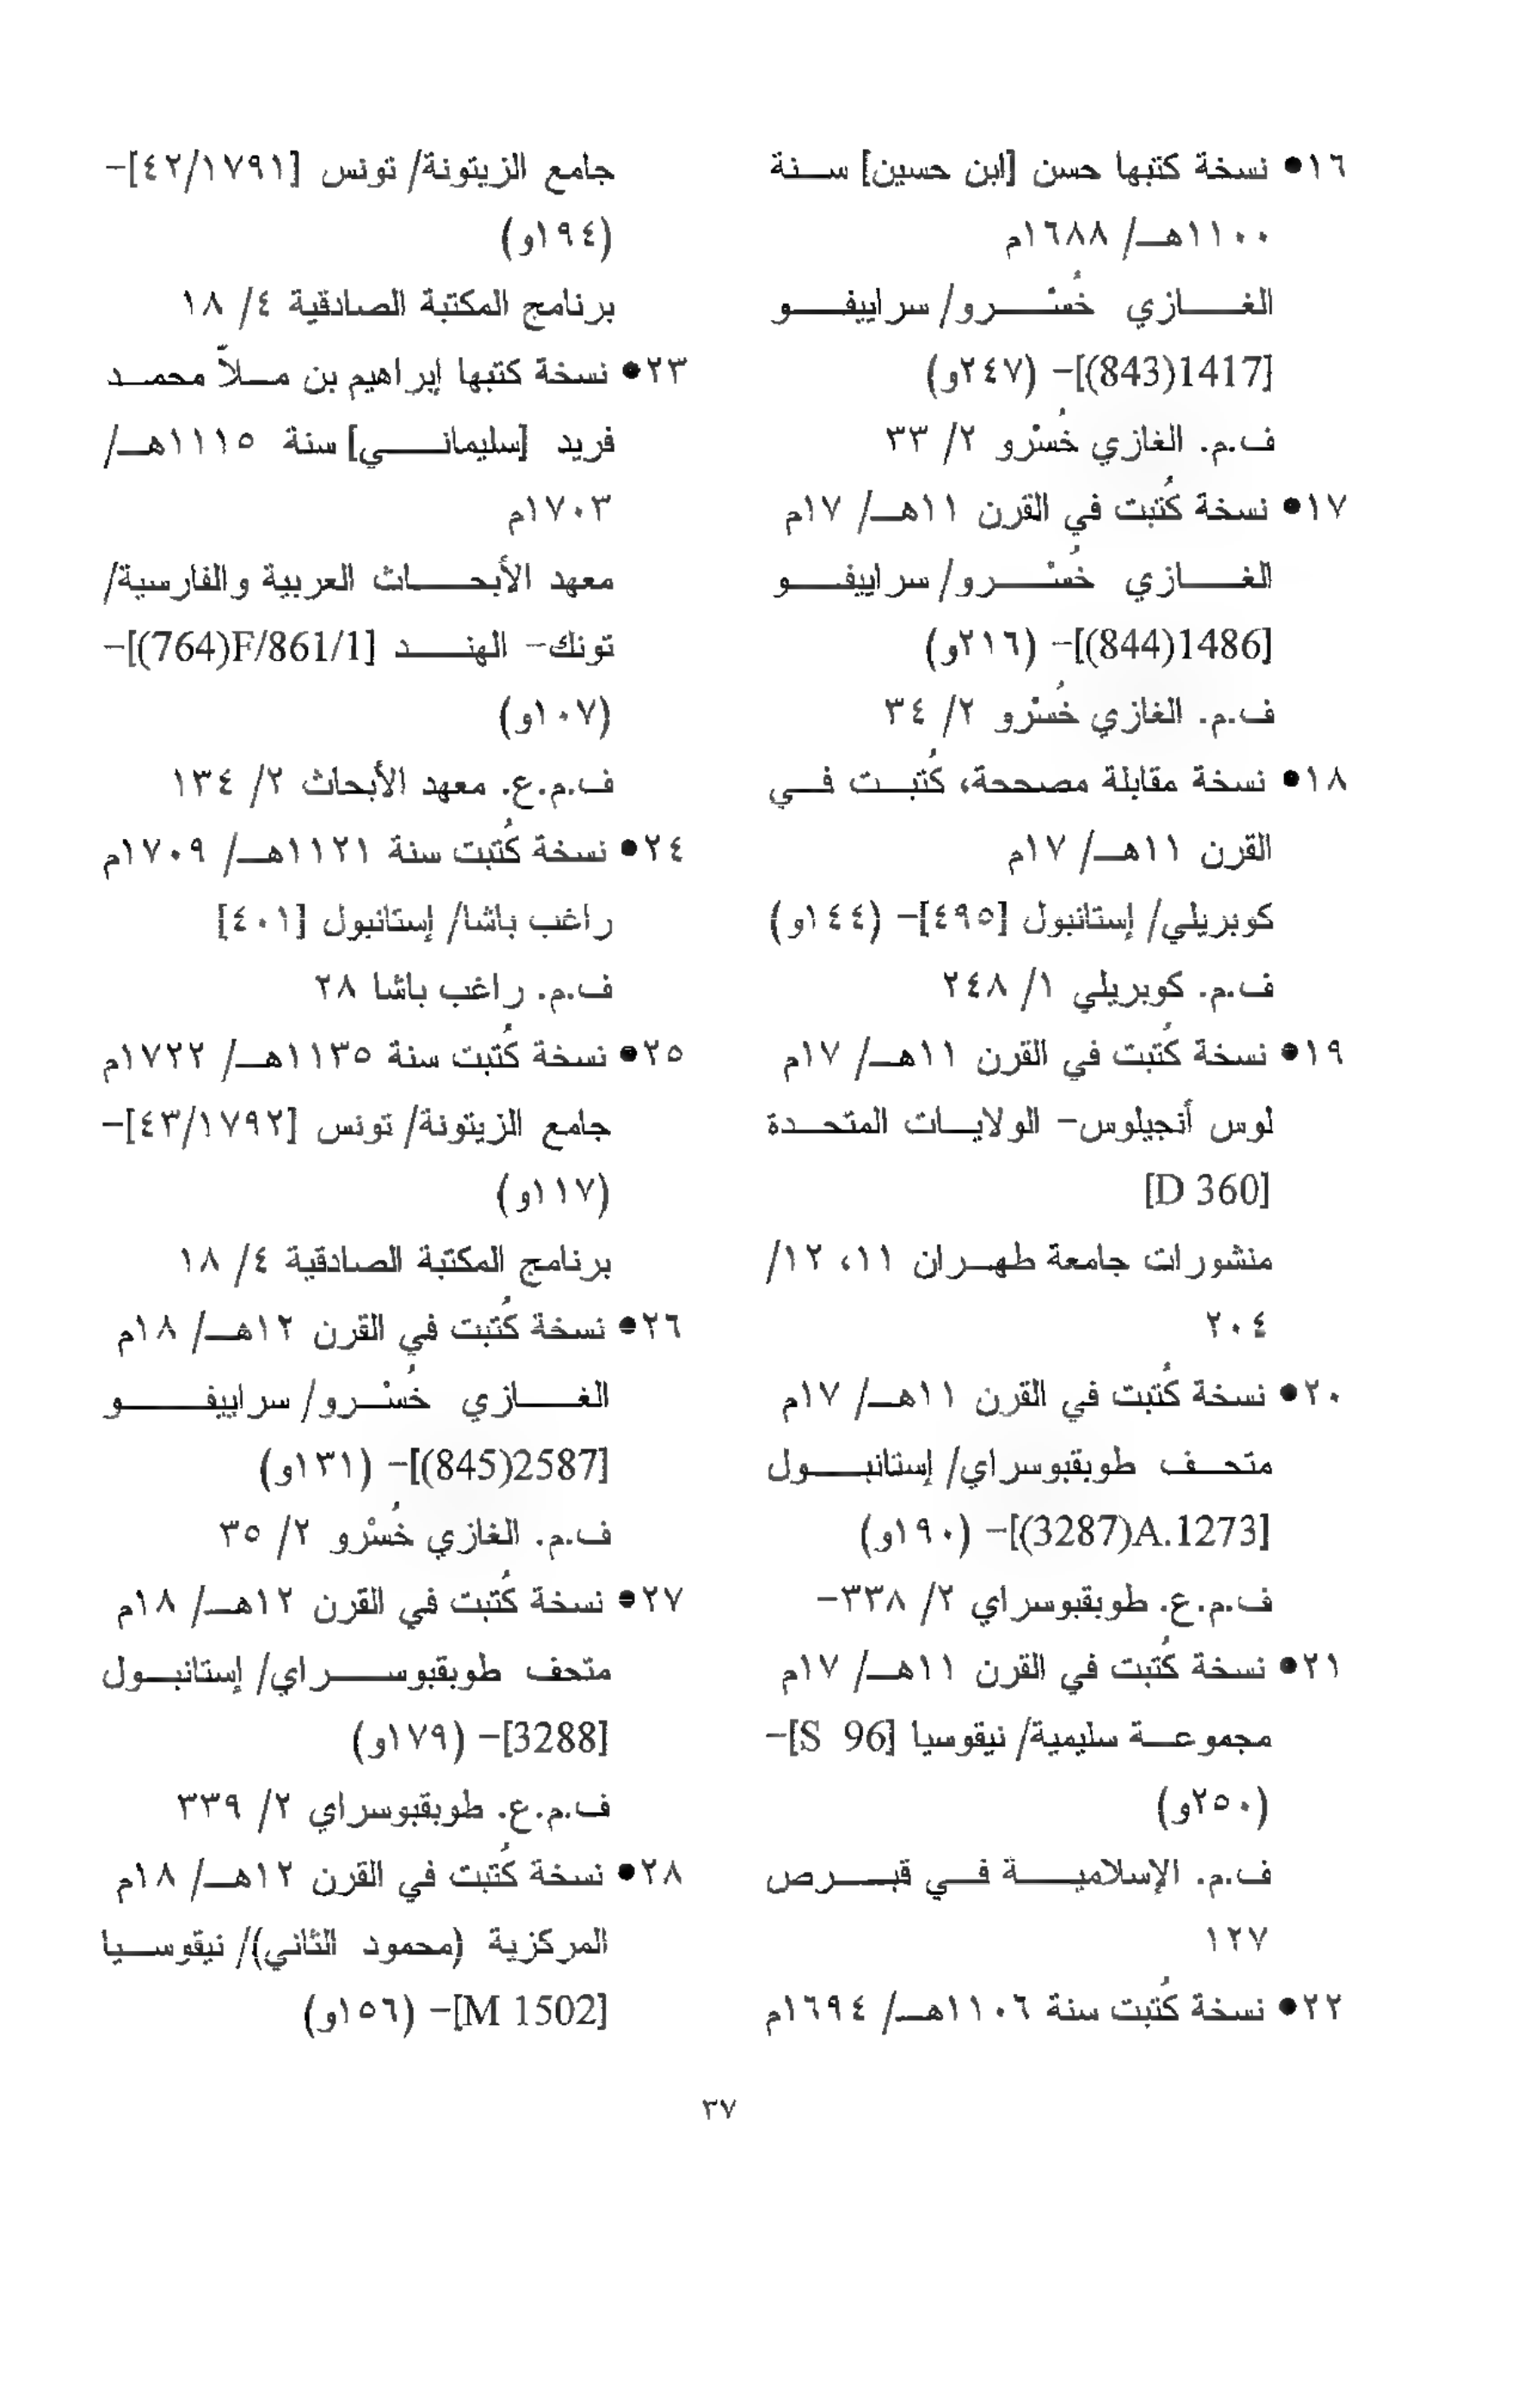 ١٦● نسخة كتبها حسن [ابن حسين] سنة
١١٠٠هـ/ ١٦٨٨م
الغازي خُسْرو/ سراييفو
[1417(843)]- (٢٤٧و)
ف.م. الغازي خُسْرو ٢/ ٣٣
١٧● نسخة كُتبت في القرن ١١هـ/ ١٧م
الغازي خُسْرو/ سراييفو
[1486(844)]- (٢١٦و)
ف.م. الغازي خُسْرو ٢/ ٣٤
١٨● نسخة مقابلة مصححة، كُتبت في
القرن ١١هـ/ ١٧م
كوبريلي/ إستانبول [٤٩٥]- (١٤٤و)
ف.م. كوبريلي ١/ ٢٤٨
١٩● نسخة كُتبت في القرن ١١هـ/ ١٧م
لوس أنجيلوس- الولايات المتحدة
[D 360]
منشورات جامعة طهران ١١، ١٢/
٢٠٤
٢٠● نسخة كُتبت في القرن ١١هـ/ ١٧م
متحف طوبقبوسراي/ إستانبول
[A.1273(3287)]- (١٩٠و)
ف.م.ع. طوبقبوسراي ٢/ ٣٣٨-
٢١● نسخة كُتبت في القرن ١١هـ/ ١٧م
مجموعة سليمية/ نيقوسيا [S 96]-
(٢٥٠و)
ف.م. الإسلامية في قبرص
١٢٧
٢٢● نسخة كُتبت سنة ١١٠٦هـ/ ١٦٩٤م
جامع الزيتونة/ تونس [٤٢/١٧٩١]-
(١٩٤و)
برنامج المكتبة الصادقية ٤/ ١٨
٢٣● نسخة كتبها إبراهيم بن ملاّ محمد
فريد [سليماني] سنة ١١١٥هـ/
١٧٠٣م
معهد الأبحاث العربية والفارسية/
تونك- الهند [F/861/1(764)]-
(١٠٧و)
ف.م.ع. معهد الأبحاث ٢/ ١٣٤
٢٤● نسخة كُتبت سنة ١١٢١هـ/ ١٧٠٩م
راغب باشا/ إستانبول [٤٠١]
ف.م. راغب باشا ٢٨
٢٥● نسخة كُتبت سنة ١١٣٥هـ/ ١٧٢٢م
جامع الزيتونة/ تونس [٤٣/١٧٩٢]-
(١١٧و)
برنامج المكتبة الصادقية ٤/ ١٨
٢٦● نسخة كُتبت في القرن ١٢هـ/ ١٨م
الغازي خُسْرو/ سراييفو
[2587(845)]- (١٣١و)
ف.م. الغازي خُسْرو ٢/ ٣٥
٢٧● نسخة كُتبت في القرن ١٢هـ/ ١٨م
متحف طوبقبوسراي/ إستانبول
[3288]- (١٧٩و)
ف.م.ع. طوبقبوسراي ٢/ ٣٣٩
٢٨● نسخة كُتبت في القرن ١٢هـ/ ١٨م
المركزية (محمود الثاني)/ نيقوسيا
[M 1502]- (١٥٦و)
٣٧